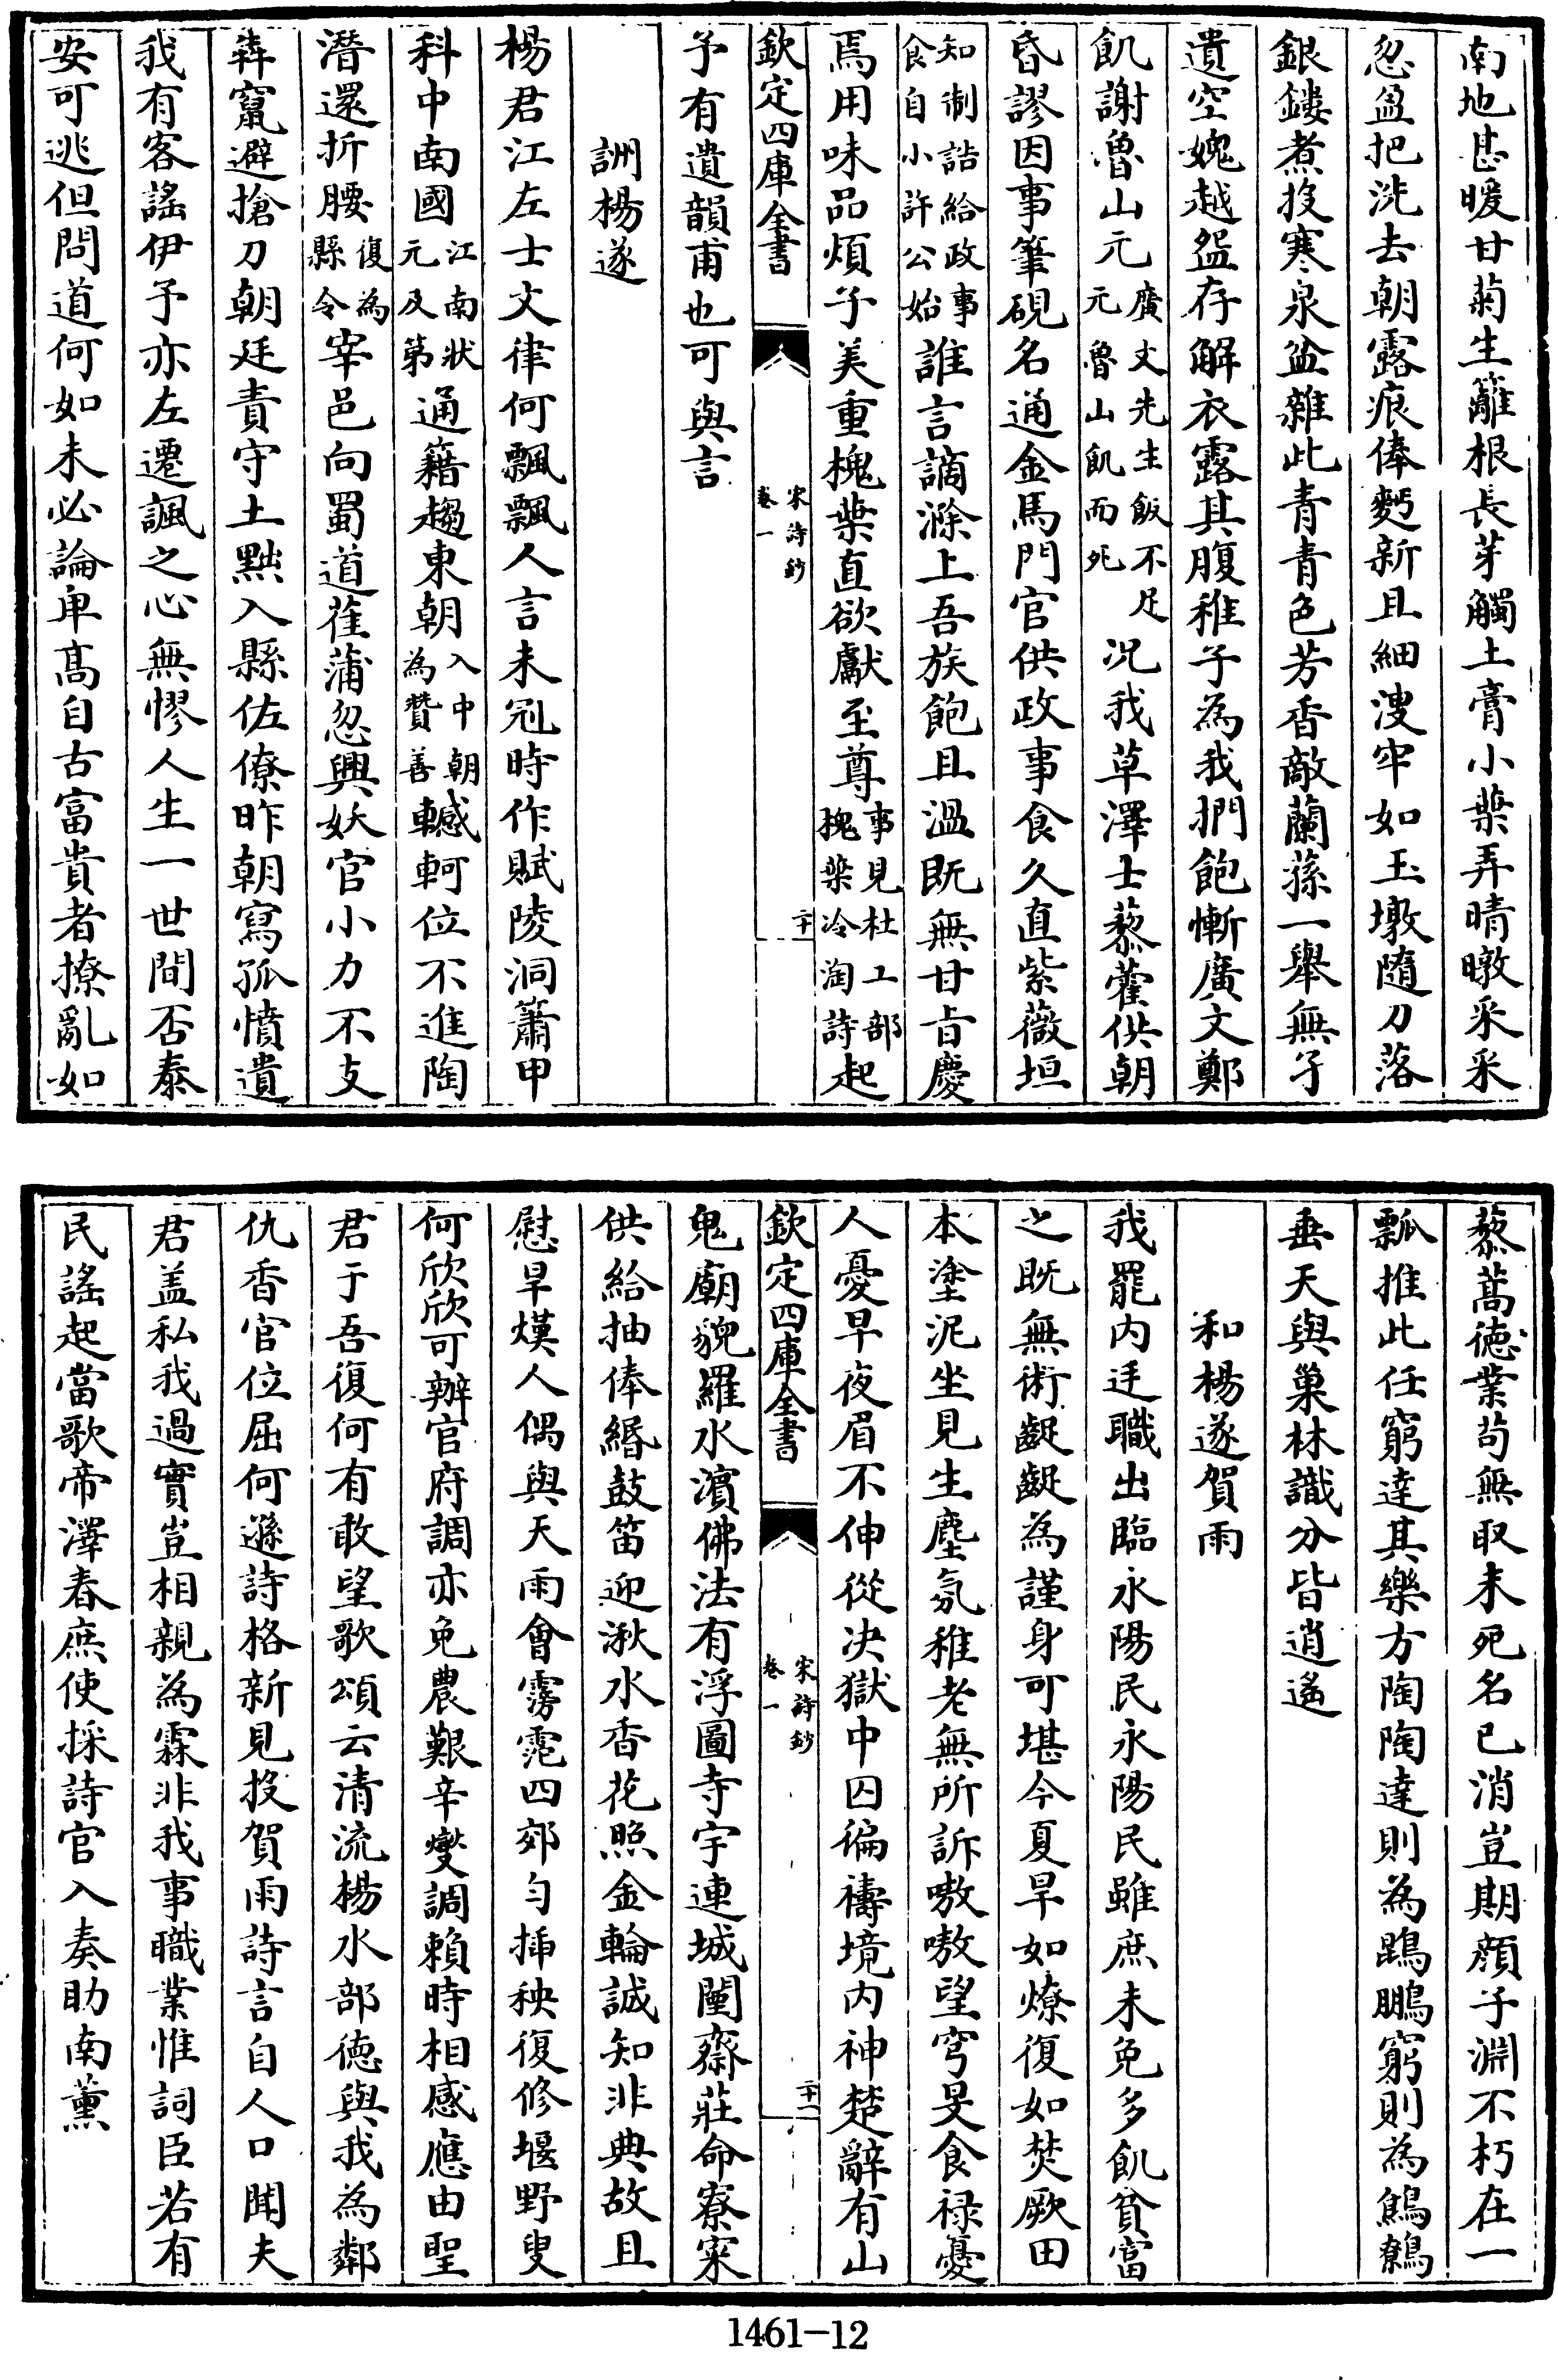 南地甚暖甘菊生籬根長芽觸土膏小葉弄晴暾采采
忽盈把洗去朝露痕俸麫新且細溲牢如玉墩隨刀落
銀鏤煮投寒泉盆雜此青青色芳香敵蘭蓀一舉無孑
遺空媿越盌存解衣露其腹稚子為我捫飽慚廣文鄭
飢謝魯山元廣文先生飯不足
元魯山飢而死況我草澤士藜藿供朝
昏謬因事筆硯名通金馬門官供政事食久直紫薇垣
知制誥給政事
食自小許公始誰言謫滁上吾族飽且溫既無甘旨慶
焉用味品煩子美重槐葉直欲獻至尊事見杜工部
槐葉冷淘詩起
欽定四庫全書
宋詩鈔
卷一
二十
予有遺韻甫也可與言
詶楊遂
楊君江左士文律何飄飄人言未冠時作賦陵洞簫甲
科中南國江南狀
元及第通籍趨東朝入中朝
為贊善轗軻位不進陶
潛還折腰復為
縣令宰邑向蜀道萑蒲忽興妖官小力不支
犇竄避搶刀朝廷責守土黜入縣佐僚昨朝寫孤憤遺
我有客謠伊予亦左遷諷之心無憀人生一世間否泰
安可逃但問道何如未必論卑高自古富貴者撩亂如
藜蒿德業苟無取未死名已消豈期顏子淵不朽在一
瓢推此任窮達其樂方陶陶達則為鵾鵬窮則為鷦鷯
垂天與巢林識分皆逍遙
和楊遂賀雨
我罷內廷職出臨永陽民永陽民雖庶未免多飢貧富
之既無術齪齪為謹身可堪今夏旱如燎復如焚厥田
本塗泥坐見生塵氛稚老無所訴嗷嗷望穹旻食祿憂
人憂早夜眉不伸從決獄中囚徧禱境內神楚辭有山
欽定四庫全書
宋詩鈔
卷一
二十一
鬼廟貌羅水濱佛法有浮圖寺宇連城闉齋莊命寮寀
供給抽俸緡鼓笛迎湫水香花照金輪誠知非典故且
慰旱熯人偶與天雨會霶霓四郊勻揷秧復修堰野叟
何欣欣可辦官府調亦免農艱辛燮調賴時相感應由聖
君于吾復何有敢望歌頌云清流楊水部德與我為鄰
仇香官位屈何遜詩格新見投賀雨詩言自人口聞夫
君盖私我過實豈相親為霖非我事職業惟詞臣若有
民謠起當歌帝澤春庶使採詩官入奏助南薰
1461-12